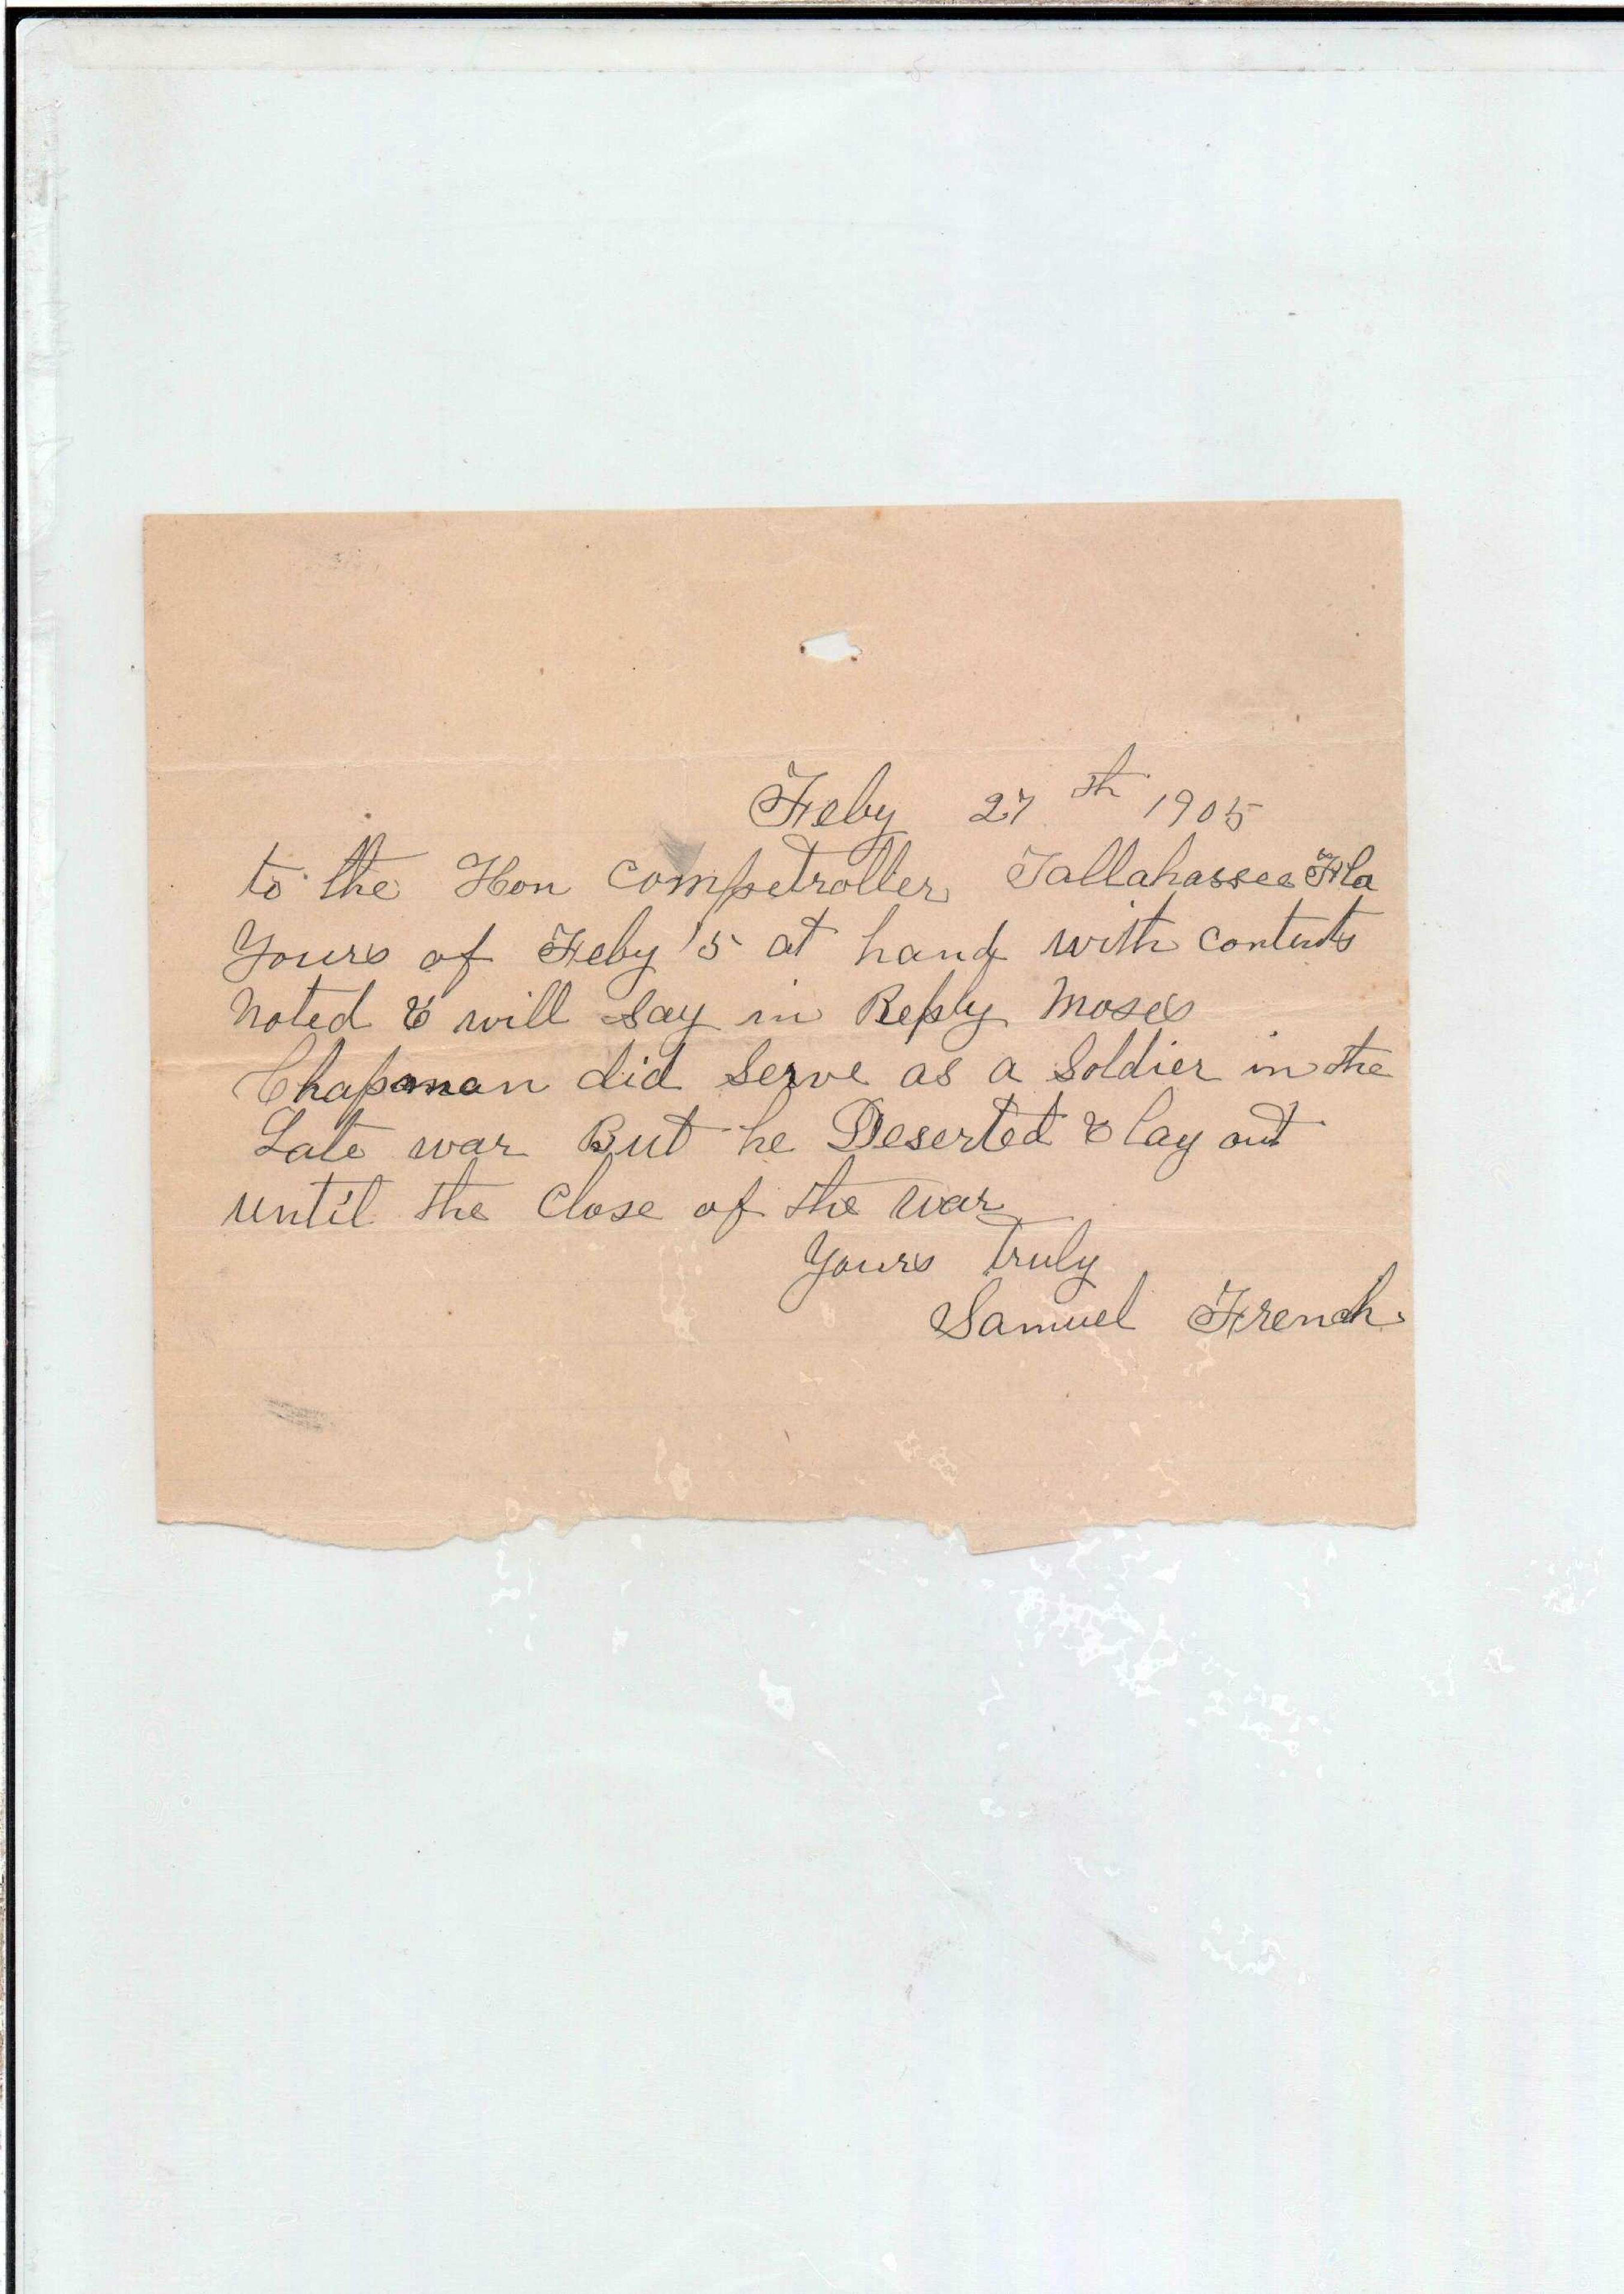 Feby 27th 1905
to the Hon Competroller Tallahassee Fla
Yours of Feby 15 at hand with contents
Noted & will say in Reply Moses
Chapman did serve as a Soldier in the
Late war But he Deserted & lay out
until the Close of the war
Yours truly
Samuel French